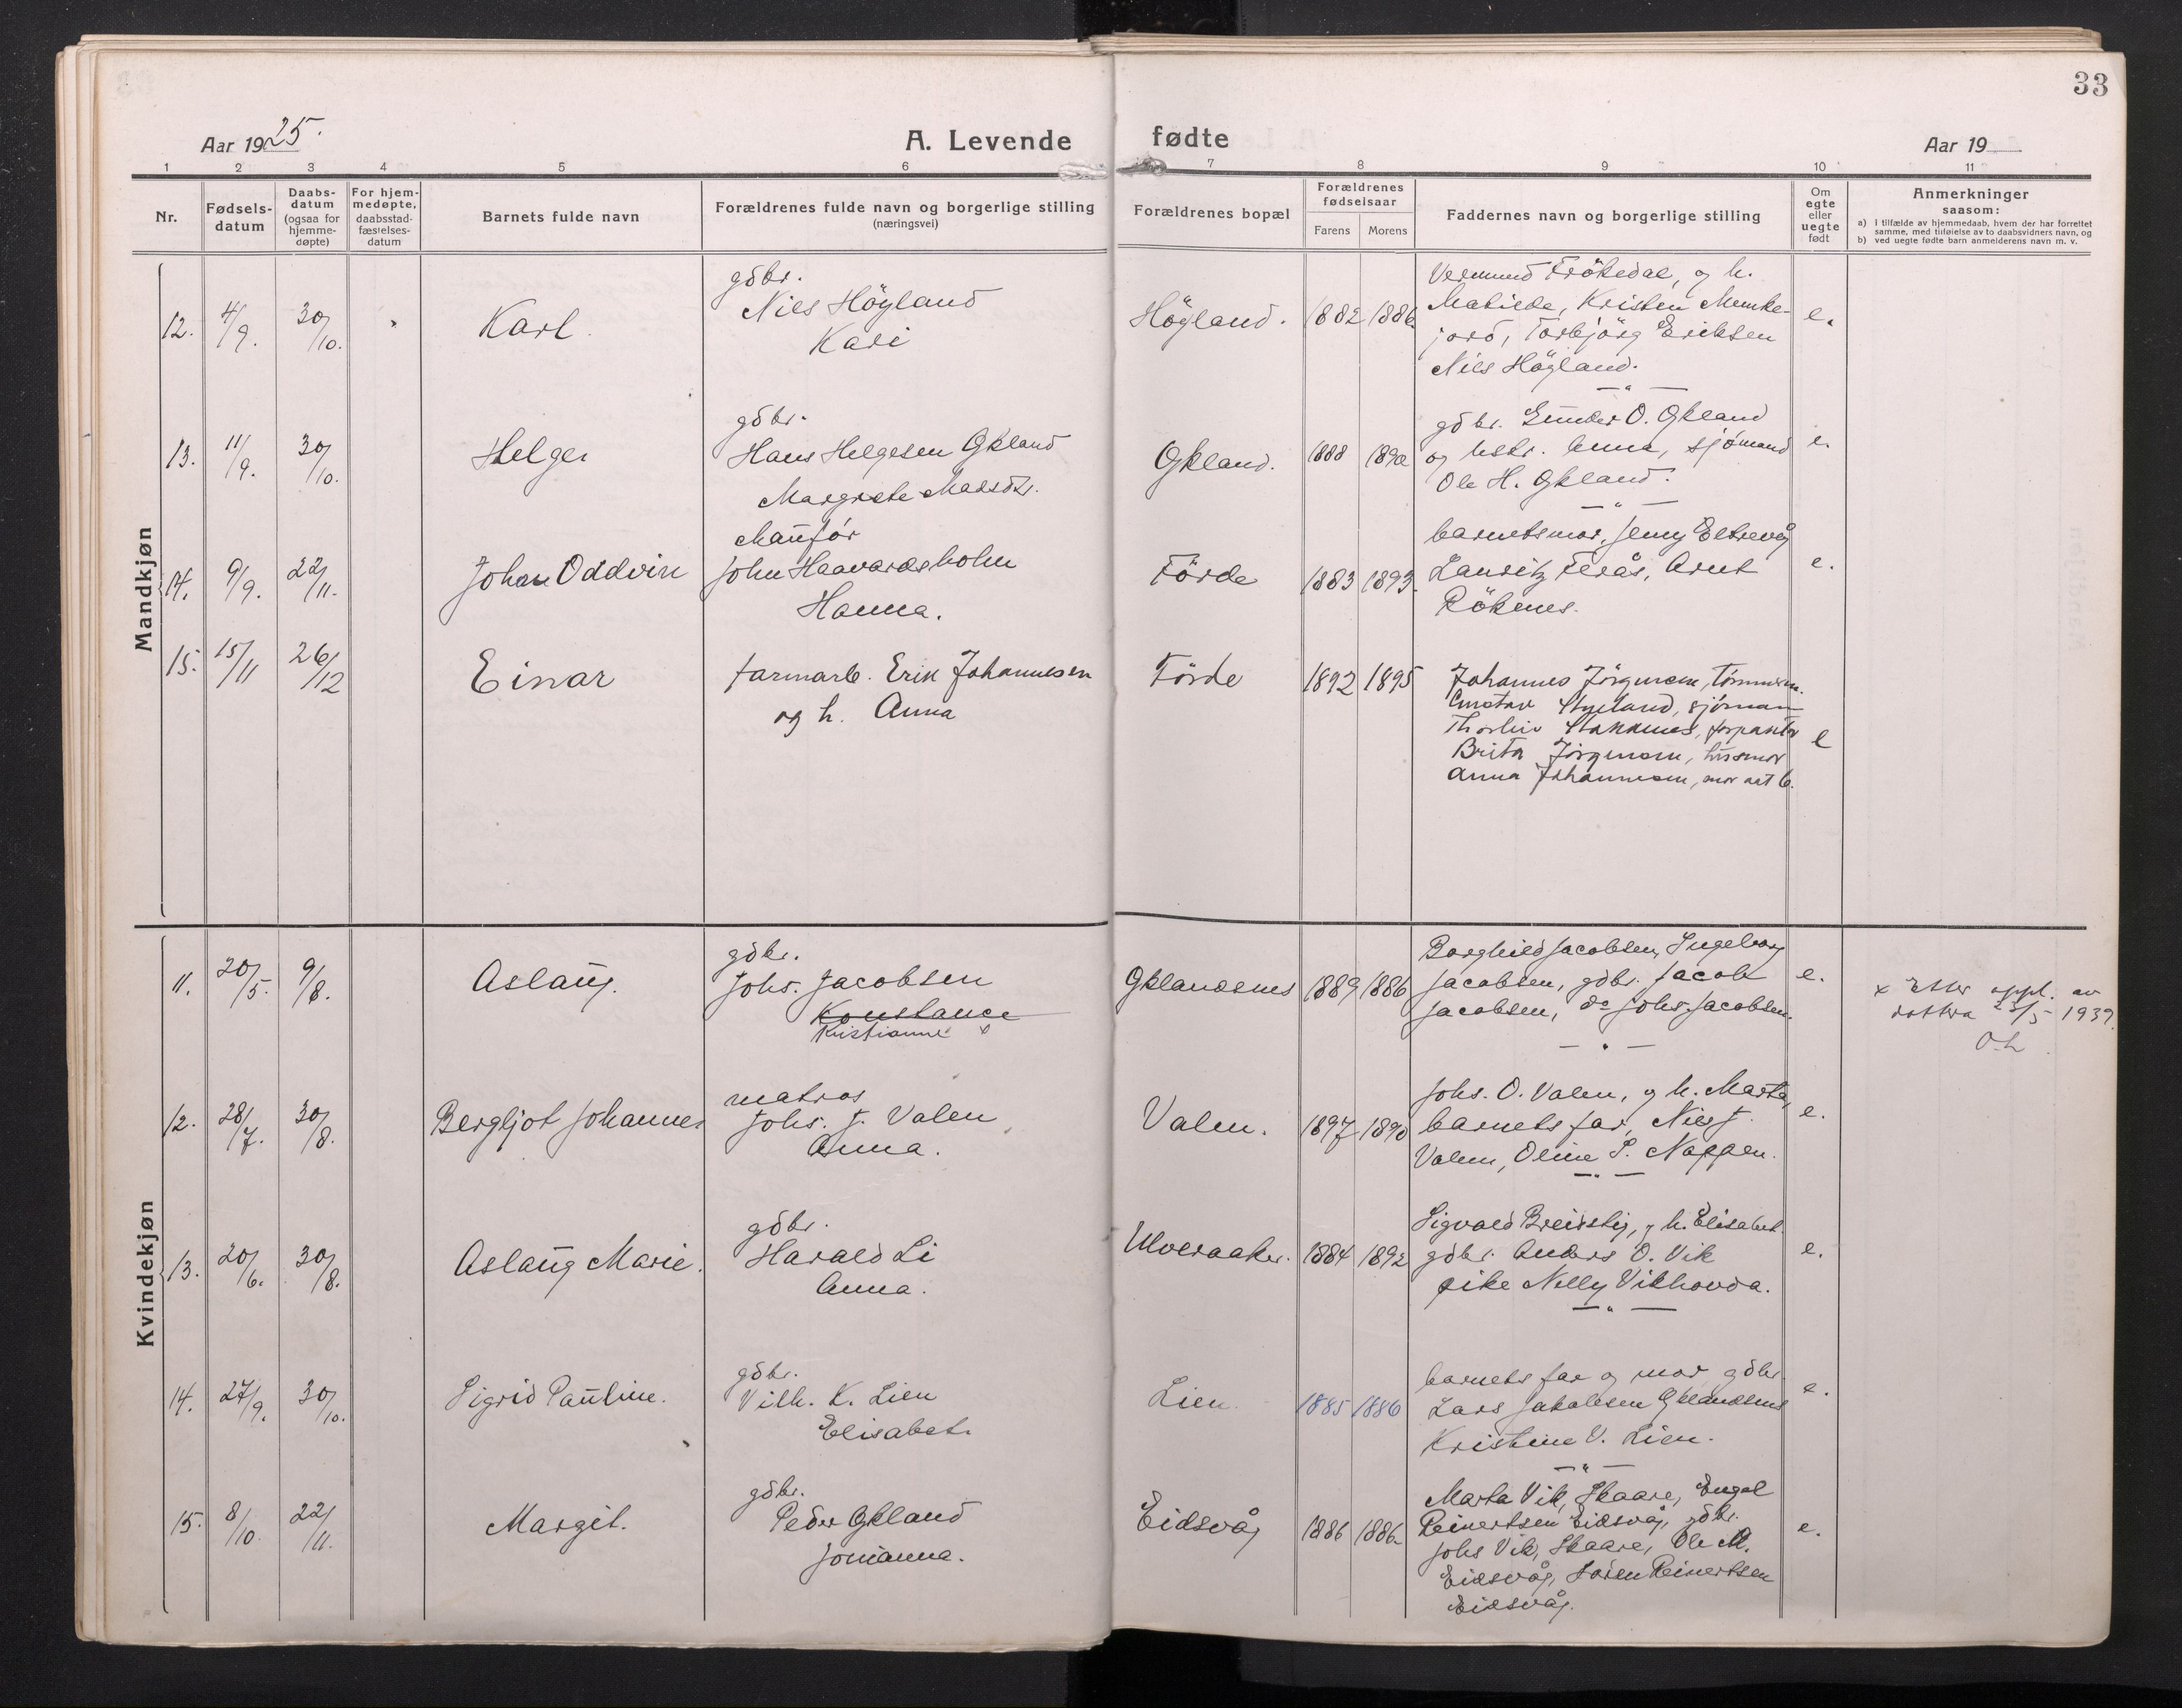 33
Aar 1925.
A. Levende fødte
Aar 19
1 2 3 4 5 6 7 8 9 10 11
Nr.
Fødsels-
datum
Daabs-
datum
(ogsaa for
hjemme-
døpte)
For hjem-
medøpte,
daabsstad-
fæstelses-
datum
Barnets fulde navn
Forældrenes fulde navn og borgerlige stilling
(næringsvei)
Forældrenes bopæl
Forældrenes
fødselsaar
Farens Morens
Faddernes navn og borgerlige stilling
Om
egte
eller
uegte
født
Anmerkninger
saasom:
a) i tilfælde av hjemmedaab, hvem der har forrettet
samme, med tilføielse av to daabsvidners navn, og
b) ved uegte fødte barn anmelderens navn m. v.
Mandkjøn
12. 4/9. 30/10. Karl.
gdbr.
Nils Höyland
Kari
Höyland. 1882 1886
Vermund Frökedal, og h.
Matilde, Kristen Munke-
jord, Torbjörg Eriksen
Nils Höyland.
e.
13. 11/9. 30/10. Helger
gdbr.
Hans Helgesen Økland
Margrete Marsdtr.
Økland. 1888 1890
gdbr. Gunder O. Økland
og hstr. Anna, sjömand
Ole H. Økland.
e.
14. 9/9. 22/11. Johan Oddvin
John Haavardsholm
Hanna.
Förde 1883 1893.
barnetsmor, Jeny Eltrevåg
Lauritz Ferås, Arnt
Rökenes.
e.
15. 15/11 26/12 Einar
farmarb. Erik Johannesen
og h. Anna
Förde 1892 1895
Johannes Jörgensen, tömmerm.
Gustav Høyland, sjöman
Brita Jörgensen, husmor
Anna Johannesen, mor aat b.
e
Kvindekjøn
11. 20/5. 9/8. Aslaug.
gdbr.
Johs. Jacobsen
Konstance
Kristianne x
Øklandsnes 1889 1886
Borghild Jacobsen, Ingeborg
Jacobsen, gdbr. Jacob
Jacobsen, do Johs. Jacobsen.
e.
x Etter oppl. av
dottra 23/5 1939.
O.L
12. 28/7. 30/8. Bergljot Johanne.
matros
Johs. J. Valen
Anna.
Valen. 1897 1890
Johs. O. Valen, og h. Marta,
barnets far, Nils J.
Valen, Oline P. Nappen.
e.
13. 20/6. 30/8. Aslaug Marie.
gdbr.
Harald Li
Anna.
Ulveraaker. 1884 1892
Sigvald Breidstig, og h. Elisabet.
gdbr. Anders O. Vik
pike Nelly Vikhovda.
e.
14. 27/9. 30/10. Sigrid Pauline.
gdbr.
Vilh. K. Lien
Elisabet.
Lien. 1885 1886
barnets far og mor gdbr.
Lars Jakobsen Øklandsnes
Kristine V. Lien.
e.
15. 8/10. 22/11. Margit.
gdbr.
Peder Økland
Jonianna.
Eidsvåg 1886 1886
Marta Vik, Skaare, Engel
Reinertsen Eidsvåg, gdbr.
Johs Vik, Skaare, Ole M.
Eidsvåg, Sören Reinertsen
Eidsvåg.
e.